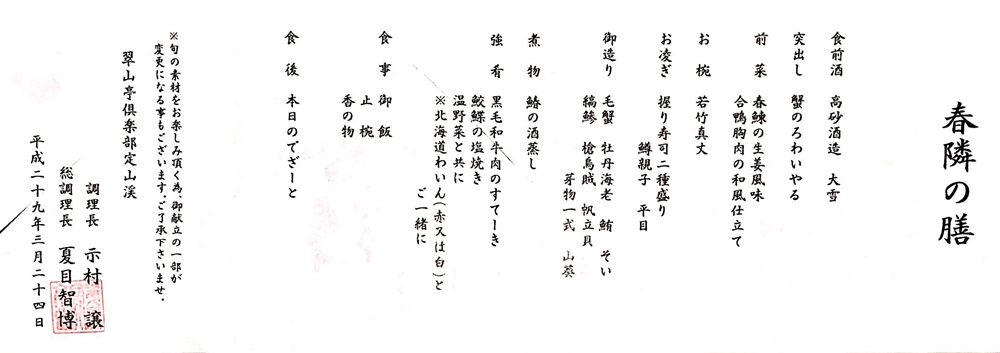 春隣の膳
食前酒 高砂酒造 大雪
突出し 蟹のろわいやる
前菜 春鰊の生姜風味
合鴨胸肉の和風仕立て
お椀 若竹真丈
お凌ぎ 握り寿司二種盛り
鱒親子 平目
御造り 毛蟹 牡丹海老 鮪 そい
縞鯵 槍烏賊 帆立貝
芽物一式 山葵
煮物 鰆の酒蒸し
強肴 黒毛和牛肉のすてーき
鮫鰈の塩焼き
温野菜と共に
※北海道わいん(赤又は白)と
ご一緒に
食事 御飯
止椀
香の物
食後 本日のでざーと
※旬の素材をお楽しみ頂く為、御献立の一部が
変更になる事もございます。ご了承下さいませ。
翠山亭倶楽部定山渓
調理長 示村 譲
総調理長 夏目智博
平成二十九年三月二十四日